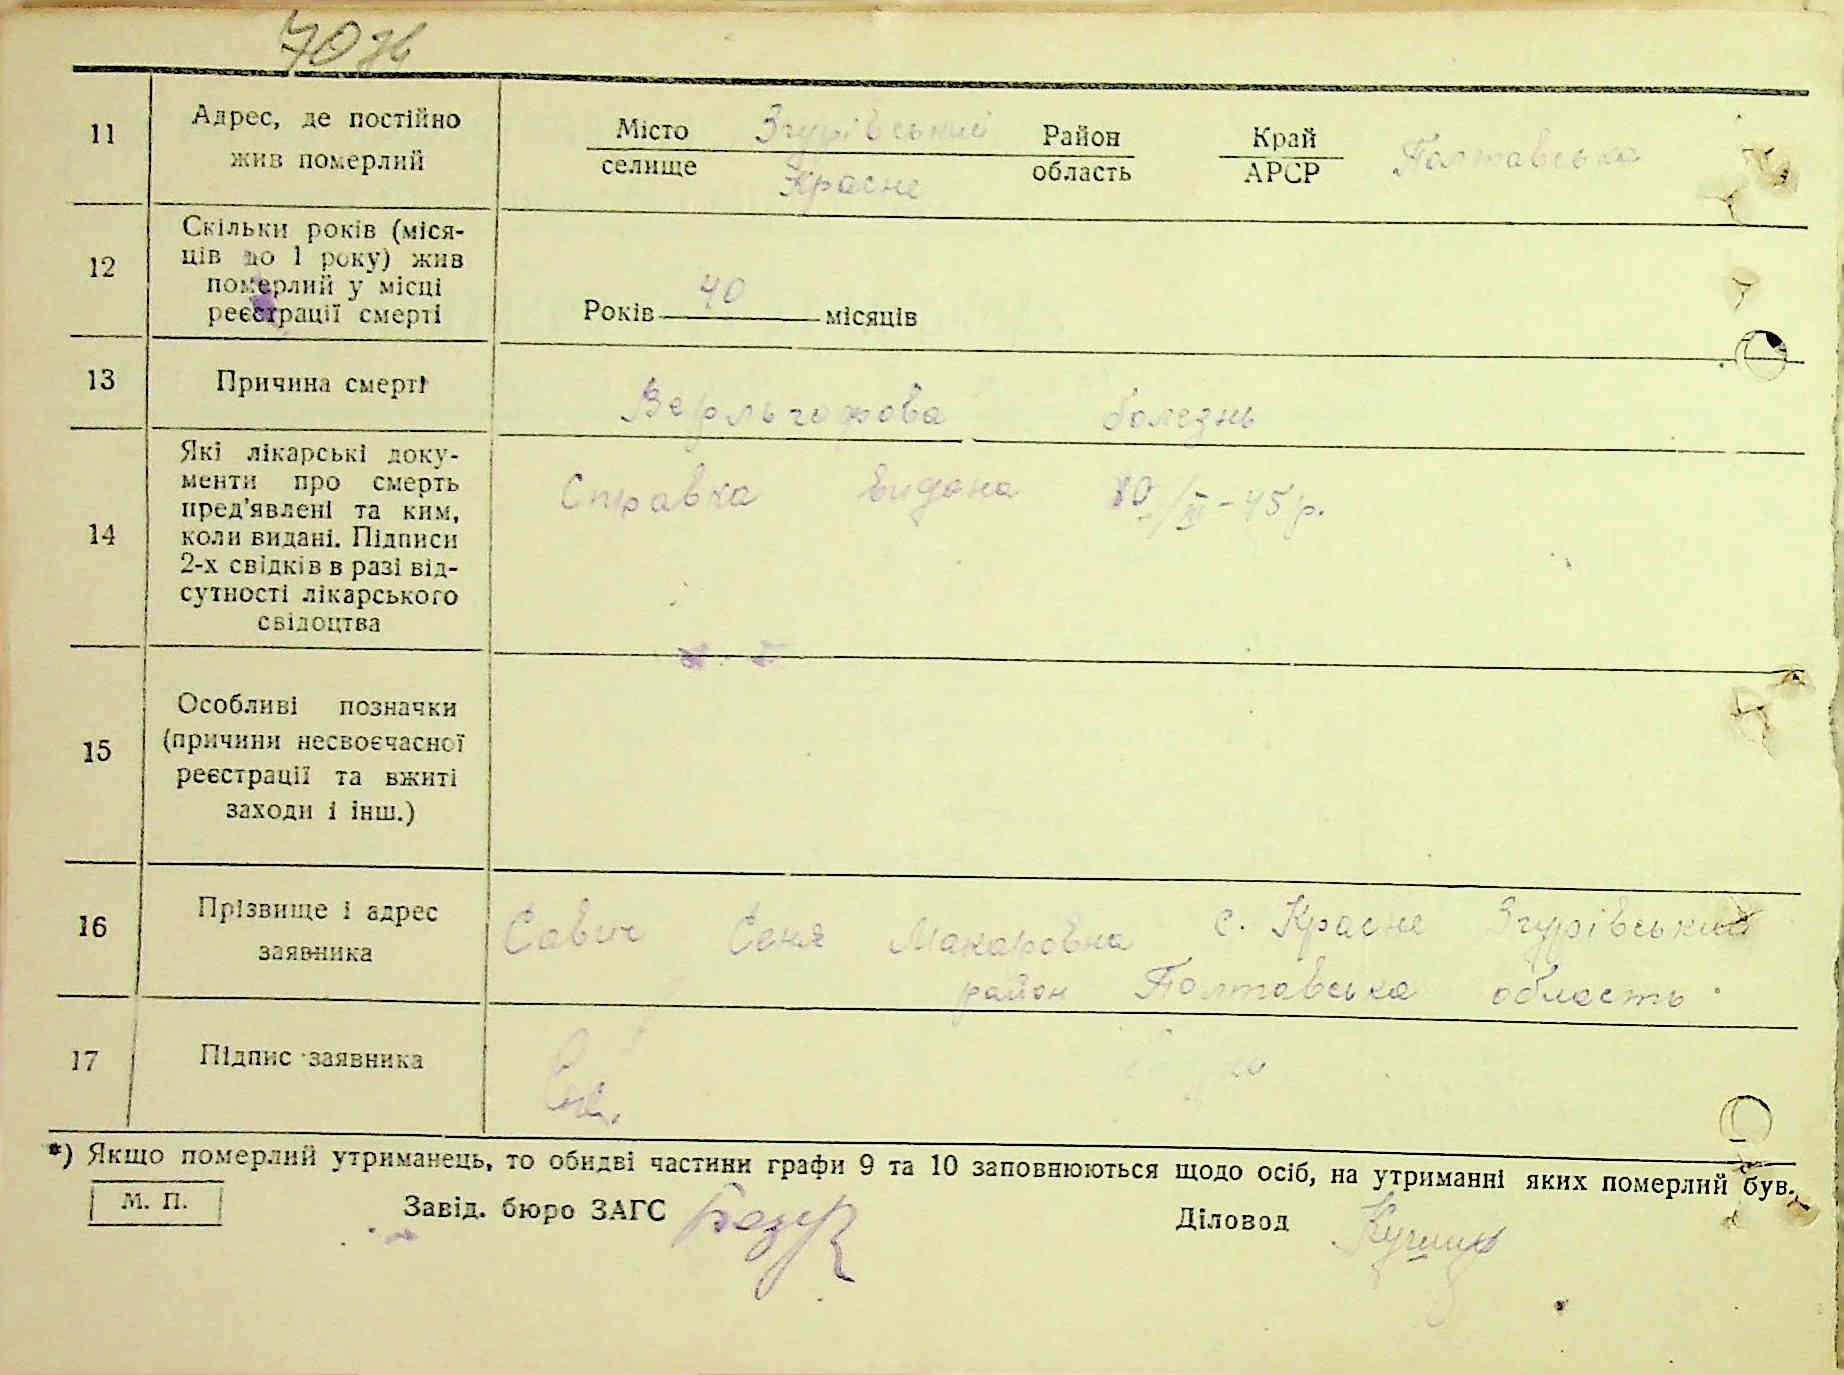 11 Адрес, де постійно жив померлий
Місто селище Згурівський Красне Район область Край АРСР Полтавська
12 Скільки років (міся-
ців до 1 року) жив
померлий у місці
реєстрації смерті
Років 40 місяців
13 Причина смерті
Верльгофова болезнь
14 Які лікарські доку-
менти про смерть
пред'явлені та ким,
коли видані. Підписи
2-х свідків в разі від-
сутності лікарського
свідоцтва
Справка видана
15 Особливі позначки
(причини несвоєчасної
реєстрації та вжиті
заходи і інш.)
16 Прізвище і адрес
заявника
Савич Макаровна с. Красне Згурівський
район Полтавська область.
17 Підпис заявника
*) Якщо померлий утриманець, то обидві частини графи 9 та 10 заповнюються щодо осіб, на утриманні яких померлий був.
М. П. Завід. бюро ЗАГС Діловод